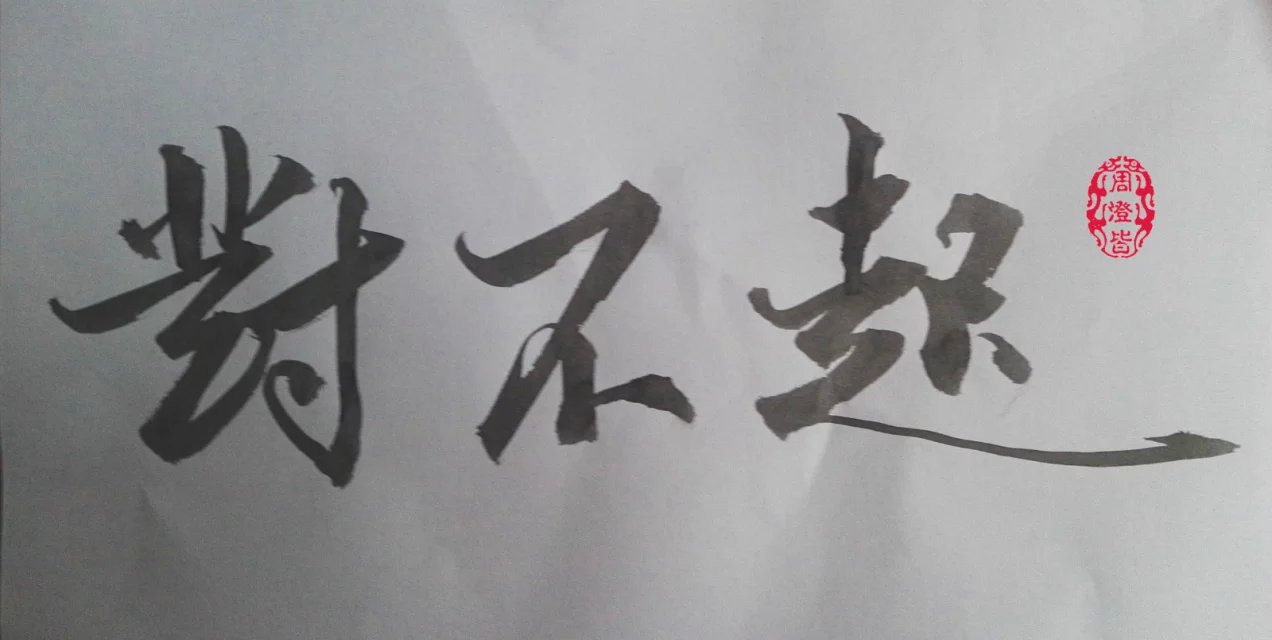 對不起
周澄皆